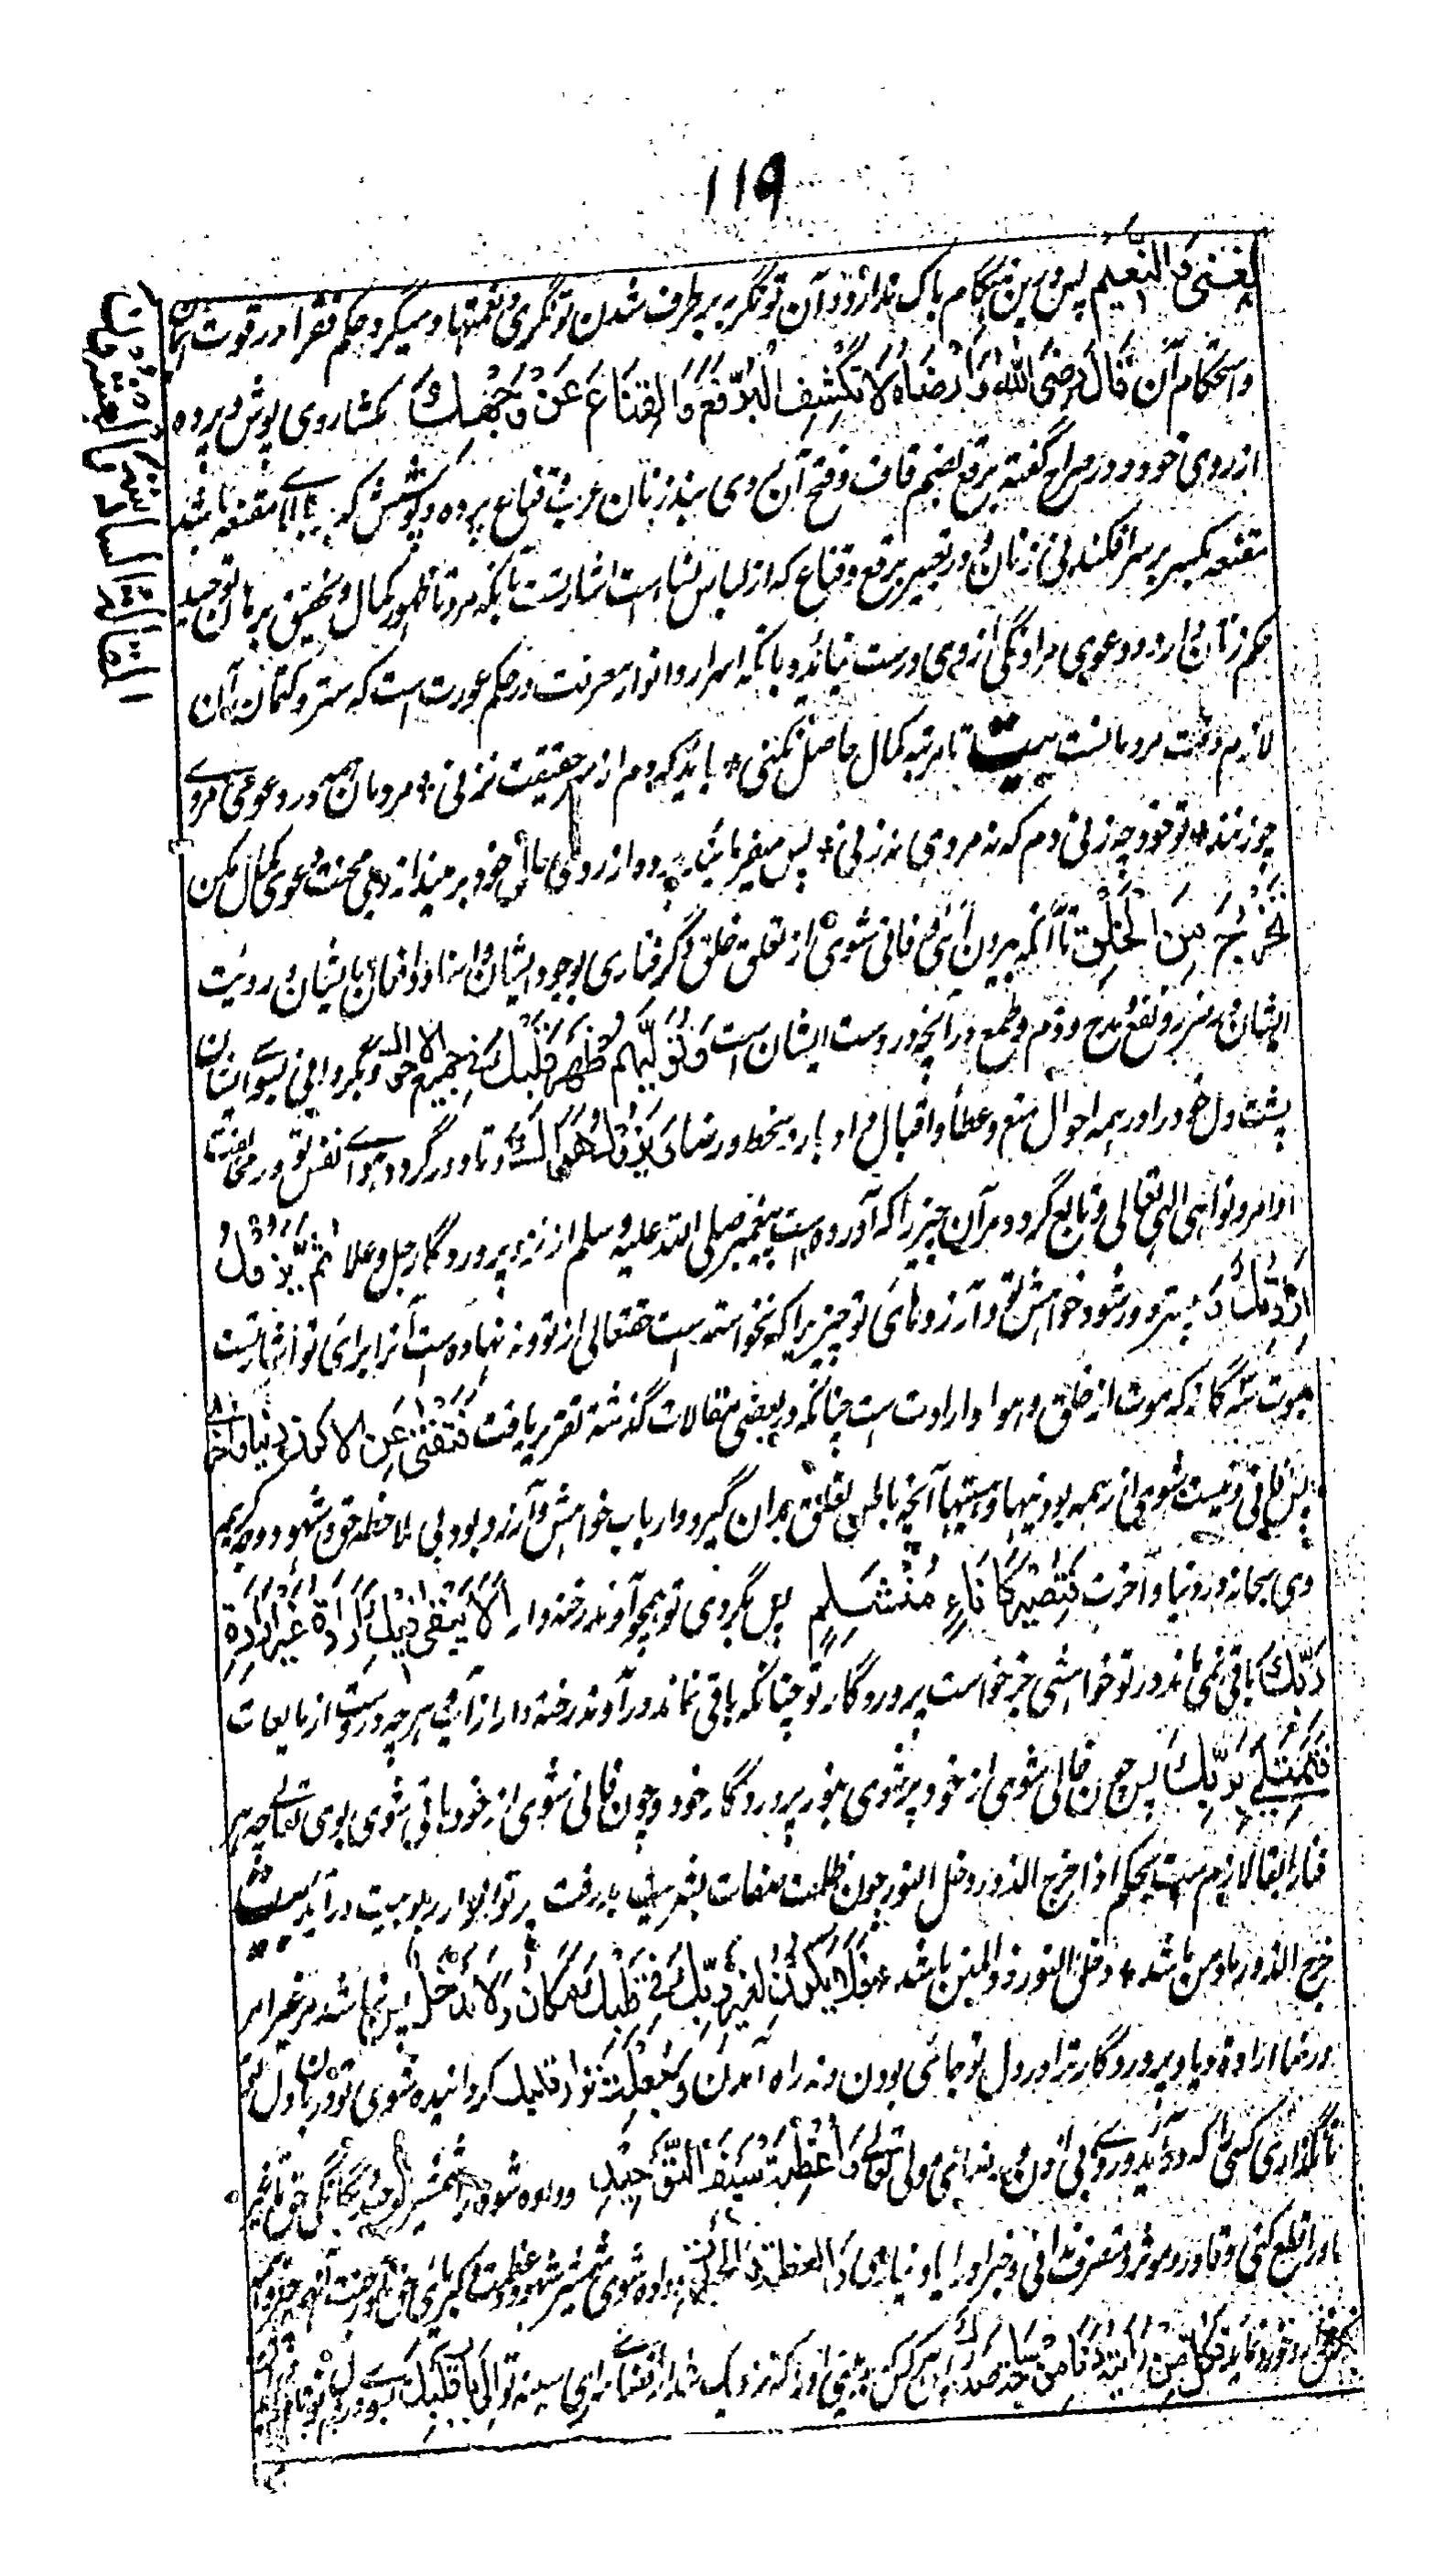 ۱۱۹
الغنی و النعیم پس درین هنگام باک ندارد و آن تونگر به برطرف شدن تونگری و نعمتها و میگیرد حکم فقرا در قوت ایمان
و استحکام آن قَالَ رَضِیَ اللهُ وَأَرْضَاهُ لَا تَكْشِفِ الْبُرْقَعَ وَالْقِنَاعَ عَنْ وَجْهِكَ مکشا روی پوش و پرده
از روی خود و در صراح گفته برقع بضم قاف و فتح آن روی بند زنان عرب قناع پرده و پوشش که بالای مقنعه باشد
مقنعه بکسر بر سر افکندنی زنان و در تعبیر برقع و قناع که از لباس نسا است اشارتست بآنکه مرد تا ظهور کمال و تحقیق برهان توحید
حکم زنان دارد و دعوی مردانگی از وی درست نیاید و بآنکه اسرار و انوار معرفت در حکم عورت است که ستر و کتمان آن
لازم وقت مردمانست بیت تا مرتبه کمال حاصل نکنی * باید که دم از سر حقیقت نزنی * مردان همه در دعوی مردی
چو زنند * تو خود چه زنی دم که نه مردی نه زنی * پس میفرماید پرده از روی حال خود برمیندازد بی محنت دعوی کمال مکن
تَخْرُجَ مِنَ الْخَلْقِ تا آنکه بیرون آئی و فانی شوی از تعلق خلق و گرفتاری بوجود ایشان و اسناد افعال بایشان و رویت
ایشان در ضرر و نفع و مدح و ذم و طمع در آنچه در دست ایشان است وَتُوَلِّيَهُمْ ظَهْرَ قَلْبِكَ فِي جَمِيعِ الْأَحْوَالِ و بگردانی بسوی آنان
پشت دل خود را در همه احوال منع و عطا و اقبال و ادبار و سخط و رضا يَزُولُ هَوَاكَ و تا دور گردد هوای نفس تو در مخالفت
اوامر و نواهی الهی تعالی و تابع گردد مر آن چیز را که آورده است پیغمبر صلی الله علیه و سلم از نزد پروردگار جل و علا ثُمَّ يَزُولُ
إِرَادَتُكَ پستر دور شود خواهش تو و آرزوهای تو چیزیرا که نخواسته است حقتعالی از تو و نه نهاده است آنرا برای تو اشارتست
بموت سه گانه که موت از خلق و هوا و ارادت است چنانکه در بعضی مقالات گذشته تقریر یافت فَتَفْنَى عَنِ الْأَكْوَانِ دُنْيَا وَأُخْرَى
پس فانی و نیست شوی از همه بودنیها و هستیها آنچه باطن تعلق بدان گیرد و ارباب خواهش و آرزو بود بی ملاحظه حق و شهود وجه کریم
وی سبحانه در دنیا و آخرت فَتَصِيرُ كَإِنَاءٍ مُنْثَلِمٍ پس بگردی تو همچو آوند رخنه دار لَا يَبْقَى فِيكَ إِرَادَةٌ غَيْرُ إِرَادَةِ
رَبِّكَ باقی نمی ماند در تو خواهشی جز خواست پروردگار تو چنانکه باقی نماند در آوند رخنه دار از آب و هر چه در وست از مایعات
فَتَمْتَلِئُ بِرَبِّكَ پس چون خالی شوی از خود پر شوی بنور پروردگار خود و چون فانی شوی از خود باقی شوی بوی تعالی چه هر
فنا را بقا لازم ست بحکم اذا خرج الذور دخل النور چون ظلمت صفات بشریت بدر رفت پرتو انوار ربوبیت درآید بیت
خرج الذور باد من باشد * دخل النور ذو المنن باشد * فَلَا يَكُونُ لِغَيْرِ رَبِّكَ فِي قَلْبِكَ مَكَانٌ وَلَا مَدْخَلٌ پس نباشد مر غیر امر
و رضا و اراده و یاد پروردگار ترا در دل تو جائی بودن و نه راه آمدن وَجُعِلْتَ بَوَّابَ قَلْبِكَ گردانیده شوی تو دربان دل
تا نگذاری کسی را که درآید در وی بی اذن خدای مولی تعالی وَأُعْطِيتَ سَيْفَ التَّوْحِيدِ و داده شوی تو شمشیر توحید و یگانگی حق تا غیر
او را قطع کنی و قادر و موثر و متصرف ندانی و جز او را یاد نیاری وَالْعَظَمَةِ وَالْجَبَرُوتِ و داده شوی شمشیر شهود عظمت و کبریای حق
فَكُلُّ مَنْ رَأَيْتَهُ دَنَا مِنْ سَاحَةِ صَدْرِكَ پس هر کس که بینی او را که نزدیک شد از فضای سینه تو إِلَى بَابِ قَلْبِكَ بسوی در دل تو
المقالة السادسة العشرون